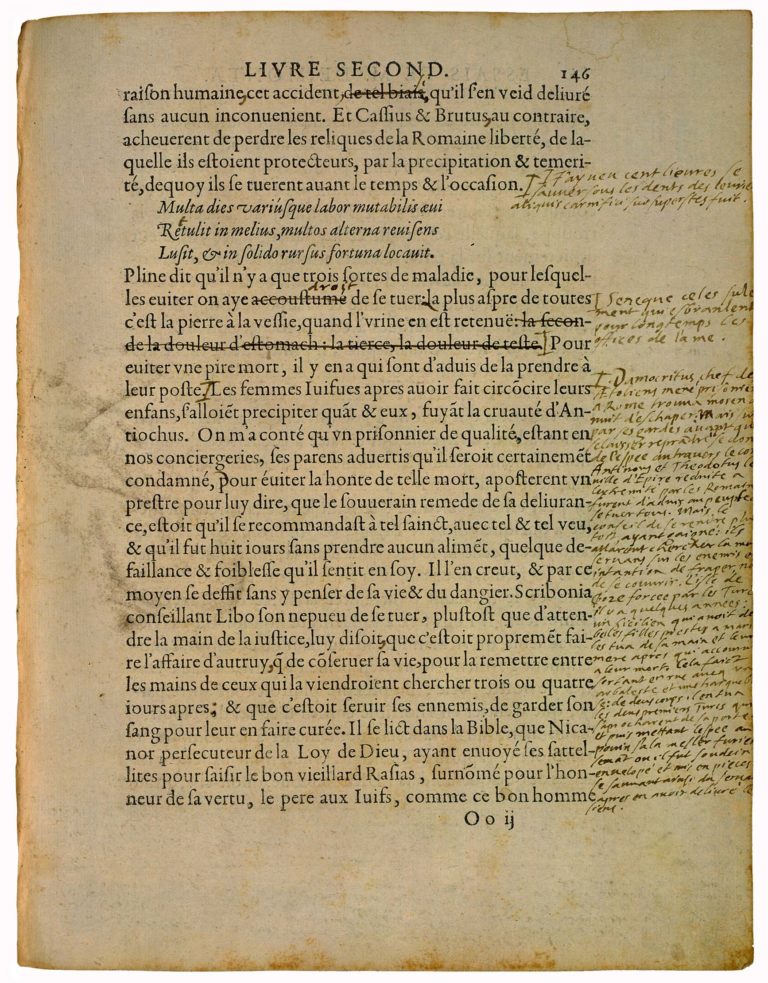 LIVRE SECOND. 146
raison humaine, cet accident, de tel biais, qu'il s'en veid deliuré
sans aucun inconuenient. Et Cassius & Brutus, au contraire,
acheuerent de perdre les reliques de la Romaine liberté, de la-
quelle ils estoient protecteurs, par la precipitation & temeri-
té, dequoy ils se tuerent auant le temps & l'occasion.
J'ay veu cent lieures se
sauuer sous les dents des leuriers
aliquis carnifici suo superstes fuit.
Multa dies variúsque labor mutabilis æui
Retulit in melius, multos alterna reuisens
Lusit, & in solido rursus fortuna locauit.
Pline dit qu'il n'y a que trois sortes de maladie, pour lesquel-
droit
les euiter on aye accoustumé de se tuer: la plus aspre de toutes
c'est la pierre à la vessie, quand l'vrine en est retenuë: la secon-
de la douleur d'estomach: la tierce, la douleur de teste. Pour
euiter vne pire mort, il y en a qui sont d'aduis de la prendre à
leur poste. Les femmes Iuifues apres auoir fait circõcire leurs
enfans, s'alloiẽt precipiter quãt & eux, fuyãt la cruauté d'An-
tiochus. On m'a conté qu'vn prisonnier de qualité, estant en
nos conciergeries, ses parens aduertis qu'il seroit certainemẽt
condamné, pour éuiter la honte de telle mort, aposterent vn
prestre pour luy dire, que le souuerain remede de sa deliuran-
ce, estoit qu'il se recommandast à tel sainct, auec tel & tel veu,
& qu'il fut huit iours sans prendre aucun alimẽt, quelque de-
faillance & foiblesse qu'il sentit en soy. Il l'en creut, & par ce
moyen se deffit sans y penser de sa vie & du dangier. Scribonia
conseillant Libo son nepueu de se tuer, plustost que d'atten-
dre la main de la iustice, luy disoit, que c'estoit propremẽt fai-
re l'affaire d'autruy, q̃ de cõseruer sa vie, pour la remettre entre
les mains de ceux qui la viendroient chercher trois ou quatre
iours apres; & que c'estoit seruir ses ennemis, de garder son
sang pour leur en faire curée. Il se lict dans la Bible, que Nica-
nor persecuteur de la Loy de Dieu, ayant enuoyé ses sattel-
lites pour saisir le bon vieillard Rasias, surnõmé pour l'hon-
neur de sa vertu, le pere aux Iuifs, comme ce bon homme
Oo ij
Seneque celes sule
ment qui esbranlent
pour longtemps les
offices de lame.
Damocritus chef des
Ætoliens mené prisonier
a Rome trouua moien de
nuit deschaper. Mais
par ses gardes auant que
se laisser reprandre se dona
de lespee au trauers le cors
Antinous et Theodotus